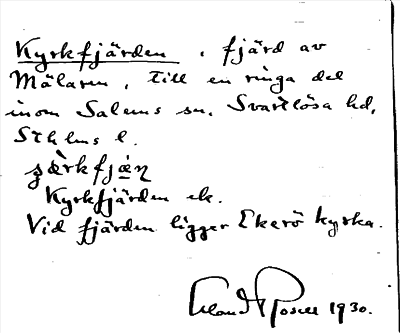 Kyrkfjärden, fjärd av
Mälaren, till en ringa del
inom Salems sn. Svartlösa hd,
Sthlms l.
Kyrkfjärden ek.
Vid fjärden ligger Ekerö kyrka.
1930.